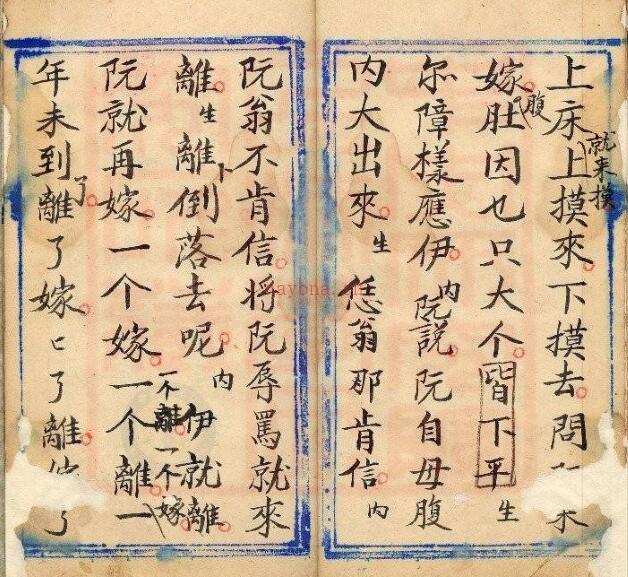 上床上摸來下摸去問
就来摸
嫁肚因乜只大个皆下平生
腹
尔障樣應伊内阮説阮自母腹
内大出來生恁翁那肯信内
阮翁不肯信将阮辱罵就來
離生離卜倒落去呢内伊就離
阮就再嫁一个嫁一个離一
不離一个嫁
年未到離了嫁了離了
了